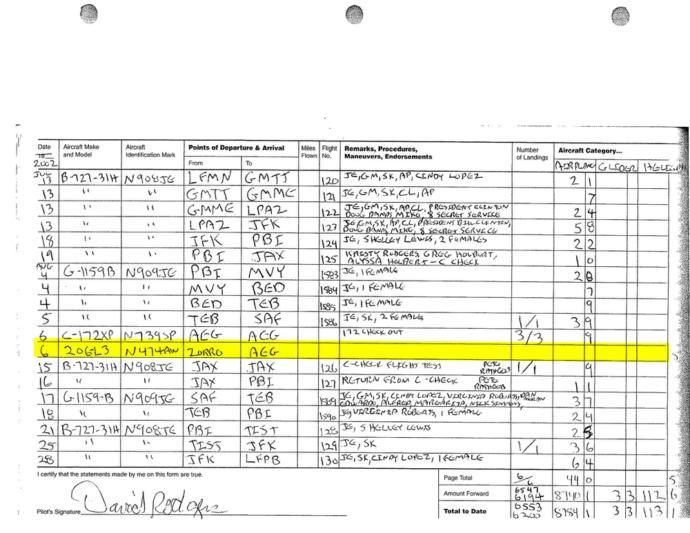 Date Aircraft Make and Model Aircraft Identification Mark Points of Departure & Arrival From To Miles Flown Flight No. Remarks, Procedures, Maneuvers, Endorsements Number of Landings Aircraft Category...
2002 AIRPLANE GLIDER
JUL 13 B-727-31H N908JE LFMN GMTT 120 JE, GM, SK, AP, CINDY LOPEZ 2 1
13 " " GMTT GMME 121 JE, GM, SK, CL, AP 7
13 " " GMME LPAZ 122 JE, GM, SK, AP, CL, PRESIDENT CLINTON DOUG BAND, MIKE, 8 SECRET SERVICE 2 4
13 " " LPAZ JFK 123 JE, GM, SK, AP, CL, PRESIDENT BILL CLINTON, DOUG BAND, MIKE, 8 SECRET SERVICE 5 8
18 " " JFK PBI 124 JE, SHELLEY LEWIS, 2 FEMALES 2 2
19 " " PBI JAX 125 KRISTY RODGERS, GREG HOLBERT, ALYSSA HOLBERT - C CHECK 1 0
AUG 4 G-1159B N909JE PBI MVY 1583 JE, 1 FEMALE 2 8
4 " " MVY BED 1584 JE, 1 FEMALE 7
4 " " BED TEB 1585 JE, 1 FEMALE 9
5 " " TEB SAF 1586 JE, SK, 2 FEMALES 1/1 3 9
6 C-172XP N739SP AEG AEG 172 CHECK OUT 3/3 9
6 20GL3 N474AW ZORRO AEG
15 B-727-31H N908JE JAX JAX 126 C-CHECK FLIGHT TEST PETE 1/1 9
16 " " JAX PBI 127 RETURN FROM C-CHECK PETE 1 1
17 G-1159-B N909JE SAF TEB 1589 JE, GM, SK, CINDY LOPEZ, VIRGINIA ROBERTS, 3 7
18 " " TEB PBI 1590 JE, VIRGINIA ROBERTS, 1 FEMALE 2 4
21 B-727-31H N908JE PBI TIST 128 JE, SHELLEY LEWIS 2 5
25 " " TISS JFK 129 JE, SK 1/1 3 6
28 " " JFK LFPB 130 JE, SK, CINDY LOPEZ, 1 FEMALE 6 4
I certify that the statements made by me on this form are true.
Page Total 6/6 44 0 5
Amount Forward 6547 6194 8740 1 3 3 112 6
Pilot's Signature David Rodgers Total to Date 6553 6200 8784 1 3 3 113 1